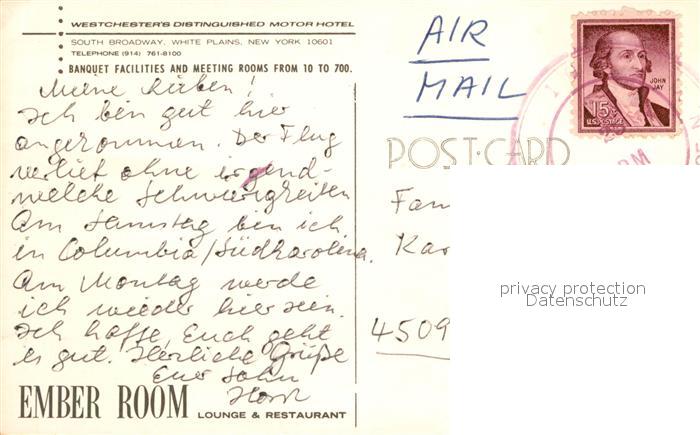 WESTCHESTER'S DISTINGUISHED MOTOR HOTEL
SOUTH BROADWAY, WHITE PLAINS, NEW YORK 10601
TELEPHONE (914) 761-8100
BANQUET FACILITIES AND MEETING ROOMS FROM 10 TO 700.
Meine Lieben!
Ich bin gut hier
angekommen. Der Flug
verlief ohne irgend-
welche Schwierigkeiten
Am Samstag bin ich
in Columbia/Südkarolina.
Am Montag werde
ich wieder hier sein.
Ich hoffe, Euch geht
es gut. Herzliche Grüße
Euer Sohn
Horst
EMBER ROOM
LOUNGE & RESTAURANT
AIR
MAIL
JOHN
JAY
15¢
U.S. POSTAGE
PM
POST CARD
Fam
Kar
4509
privacy protection
Datenschutz